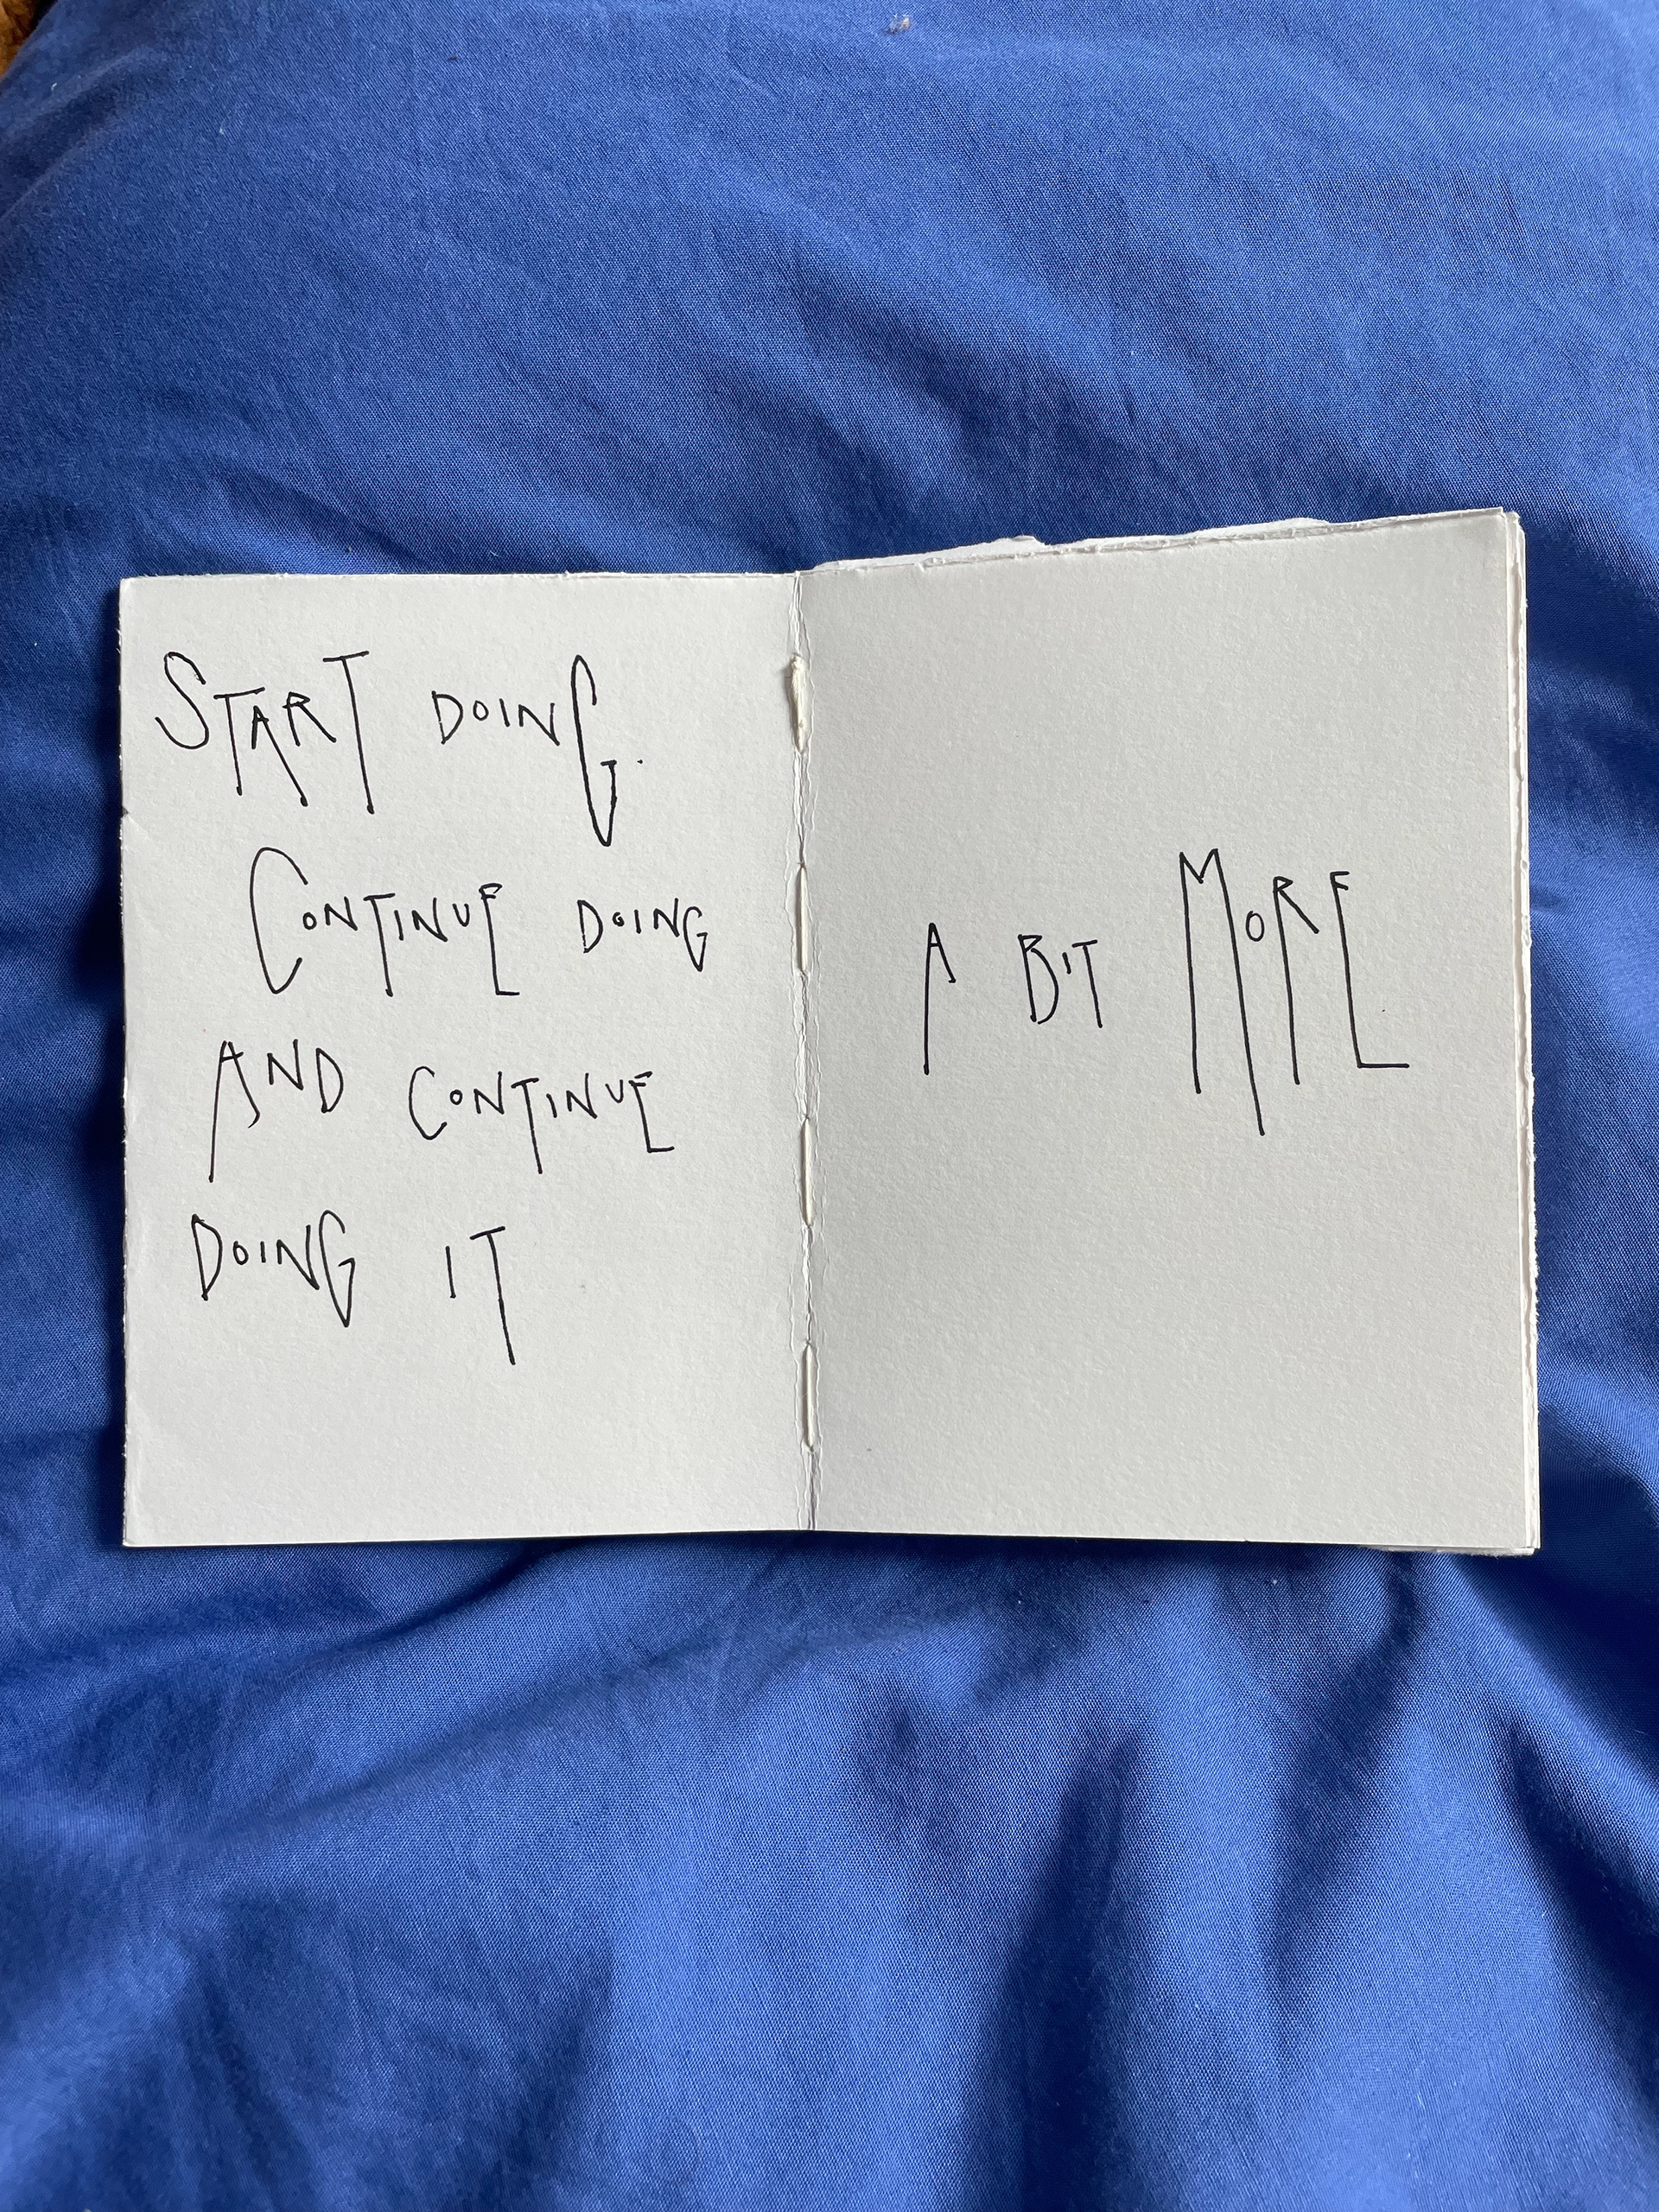 START DOING.
CONTINUE DOING
AND CONTINUE
DOING IT
A BIT MORE